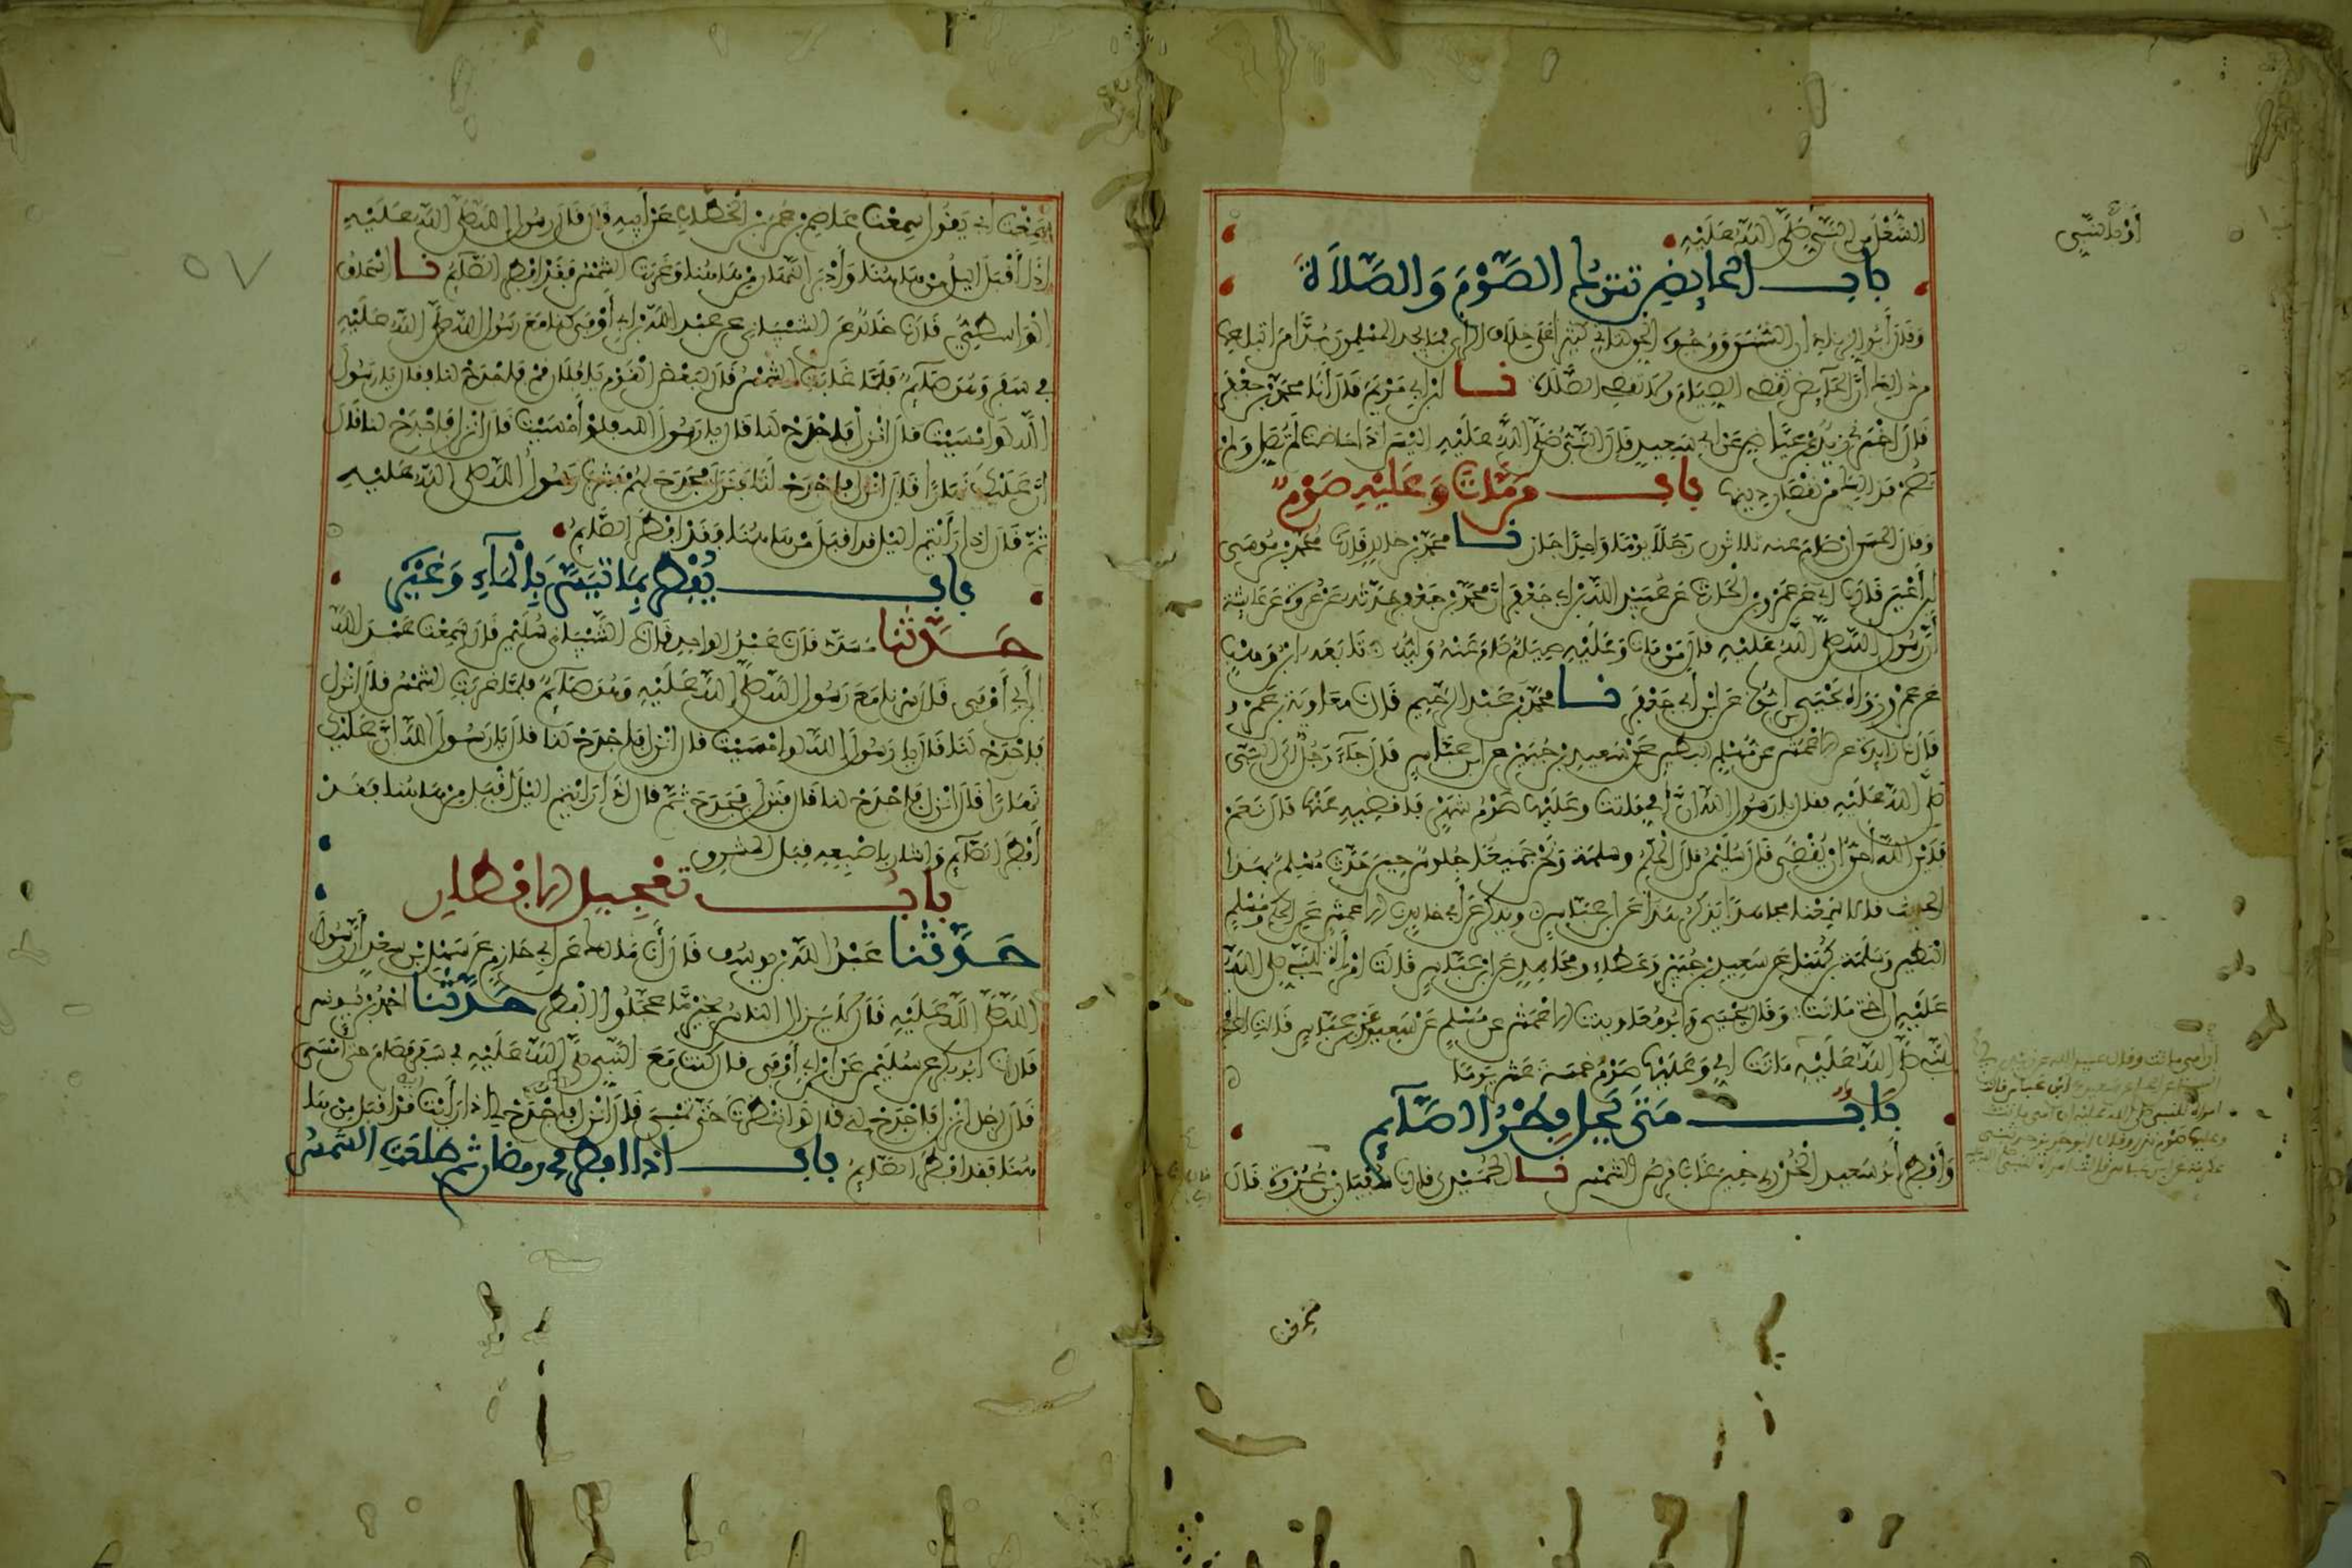 الشُّغْلُ مِنَ النَّبِيِّ صَلَّى اللَّهُ عَلَيْهِ
أَوْ بِالنَّبِيِّ
باب الحايض تترك الصَّوْمَ وَالصَّلاَةَ
وَقَالَ أَبُو الزناد ان السُّنَنَ وَوُجُوهَ الحق لتاتي كثيرا على خلاف الراي فما يجد المسلمون بُدًّا من اتباعها
من ذلك أنَّ الحَآيِضَ تقضي الصِّيَامَ ولا تقضي الصَّلَاةَ نا ابن ابي مَرْيَمَ قَالَ أَنَا محمد بن جعفر
قال اخبرني زيد عن عياض عن ابي سعيد قال النَّبِيُّ صَلَّى اللَّهُ عَلَيْهِ اليْسَ اذا حاضت لم تُصَلِّ وَلم
تصم فذلك من نقصان دينها باب مَن مَّاتَ وَعَلَيْهِ صَوْمٌ
وَقال الحسن ان صَامَ عنه ثلاثون رَجُلًا يوْمًا وَاحِدًا جاز نا محمد بن خالد قال نا محمد بن موسى
ابن أَعْيَنَ قال نا ابي عن عمرو بن الحارث عن عُبَيْدِ اللَّهِ بن ابي جعفر انَّ محمد بن جعفر حَدَّثَهُ عن عُروة عن عايشة
أن رَسُولَ اللَّهِ صَلَّى اللَّهُ عَلَيْهِ قال مَنْ مَاتَ وَعَلَيْهِ صِيَامٌ صَامَ عَنْهُ وَلِيُّهُ تَابَعَهُ ابْنُ وَهْبٍ
عن عمرو وَرَوَاهُ يَحْيَى بن ايوب عن ابْنِ أبي جعفر نا محمد بن عَبْد الرَّحِيمِ قال نا معاوية بن عمرو
قال نا زايدة عن الاعمش عن مُسْلِمٍ البطين عن سعيد بن جُبَيْرٍ عن ابن عباس قال جَآءَ رَجُلٌ الى النبي
صَلَّى اللَّهُ عَلَيْهِ فقال يا رَسُولَ اللَّهِ انَّ أُمِّي مَاتَتْ وعَلَيْهَا صَوْمُ شهْرٍ فاقضيه عَنْهَا قال نَعَمْ
فَدَيْنُ اللَّهِ أَحَقُّ انْ يُقْضَى قال سُلَيْمٰنُ قال الحَكَمُ وسلمة وَنحن جَمِيعًا جُلوسٌ حِينَ حَدَّثَ مُسْلِمٌ بهذا
الحديث قالا سَمِعْنا مجاهدًا يَذْكُرُ هَذَا عَن ابن عَبَّاسٍ ويذكر عن أبي خالدٍ نا الاعمش عن الحكم ومُسْلِمٍ
البطين وَسَلَمَةَ بن كُهَيْل عن سَعِيدِ بن جُبَيْرٍ وَعَطَاءٍ ومجاهِدٍ عن ابن عَبَّاسٍ قَالَت امْرأة للنبي صلى اللَّهُ
عَلَيْهِ ان اختي مَاتَتْ وَقال يَحْيَى وَابُو معاوية نا الاعمش عن مُسْلِمٍ عن سعيد عن ابن عَبَّاسٍ قالت امرأة
للنَّبِيِّ صَلَّى اللَّهُ عَلَيْهِ مَاتَتْ أُمِّي وَعَلَيْهَا صَوْمُ خمسة عشر يَوْمًا
ان امي ماتت وقال عبيد الله عن زيد بن ابي
انيسة عن الحكم عن سعيد عن ابن عباس قالت
امراة للنبي صلى الله عليه ان امي ماتت
وعليها صَوْم نذر وقال ابو حريز حدثني
عكرمة عن ابن عباس قالت امراة للنبي صلى الله عليه
بَابُ مَتَى يَحِلُّ فِطْرُ الصَّآيِمِ
وَأَفْطَرَ أَبُو سَعِيد الخُدْرِي حِينَ غَابَ قُرصُ الشَّمْسِ نا الحُمَيْدي قال نا سُفْيَانُ نا هشام بن عُرْوَةَ قَالَ
سَمِعْتُ ابي يَقُولُ سَمِعْتُ عَاصِمَ بن عُمَرَ بن الخَطَّابِ عَنْ أَبِيهِ قال قَالَ رسُول اللَّهِ صَلَّى اللَّهُ عَلَيْهِ
إذا أَقْبَلَ الليلُ مِنْ هَاهُنَا وَأَدْبَرَ النَّهَارُ مِنْ هَاهُنَا وَغَرَبَتِ الشَّمْسُ فَقَدْ افْطَرَ الصَّايِمُ نا اسْحَاقُ
الْوَاسِطِيُّ قال نا خَالدٌ عن الشَّيْبَانِيِّ عن عَبْدِ اللَّهِ بن أبي أَوْفَى كنا مَعَ رَسُول اللَّهِ صلى اللَّهُ عَلَيْهِ
في سَفَرٍ وَهُوَ صَايِمٌ فَلَمَّا غَابَت الشَّمْسُ قَالَ لِبَعْضِ الْقَوْمِ يا فلان قُمْ فَاجْدَحْ لنا فقال يا رَسُولَ
اللَّهِ لَوْ أَمْسَيْتَ قال انْزِلْ فَاجْدَحْ لَنَا قال يا رَسُولَ اللهِ فلو أَمْسَيْتَ قال انْزِلْ فَاجْدَحْ لنا قالَ
انَّ عَلَيْكَ نهَارًا قال انْزِلْ فاجْدَحْ لَنَا فَنَزَلَ فَجَدَحَ لهُمْ فَشَرِبَ رَسُولُ اللَّهِ صَلَّى اللَّهُ عَلَيْهِ
ثُمَّ قَالَ اذا رَأَيْتُم الليلَ قد اقبَلَ مِنْ هَاهُنَا فَقَدْ افْطَرَ الصَّايِمُ
باب يُفْطِرُ بِمَا تَيَسَّرَ بِالْمَآءِ وَغَيْرِه
حَدَّثَنا مُسَدَّد قال نا عَبْدُ الواحِدِ قال نا الشَّيْبَانِي سُلَيْمٰن قال سَمِعْتُ عَبْدَ اللَّهِ
ابن أبي أَوْفَى قال سرْنا مَعَ رَسُولِ اللَّهِ صَلَّى اللَّهُ عَلَيْهِ وَهُوَ صَايِمٌ فلمَّا غَرَبَت الشَّمْسُ قال انْزِلْ
فَاجْدَحْ لَنَا قال يا رَسُولَ اللَّهِ لو امْسَيْتَ قال انْزِل فاجْدَحْ لنا قال يا رَسُولَ اللَّهِ انَّ عَلَيْكَ
نهَارًا قال انْزِل فاجْدَحْ لنا قال فنَزل فَجَدَحَ ثمَّ قال اذا رَايْتُم الليل اقْبَلَ مِنْ هَاهُنا فقَدْ
أَفْطَرَ الصَّايِمُ وَاشار باصْبعِهِ قِبَلَ المشرق
بابُ تَعْجِيلِ الافْطَارِ
حَدَّثَنا عَبْدُ اللَّهِ بن يوسُف قال أنا مَالك عن ابي حازِمٍ عن سَهْلِ بن سعْدٍ أن رَسُولَ
اللَّهِ صَلَّى اللَّهُ عَلَيْهِ قال لا يَزالُ الناسُ بخيْرٍ مَّا عجَّلُوا الْفِطْرَ حَدَّثَنا احْمدُ بن يُونس
قال نا ابو بكر عن سُلَيْمٰن عن ابن ابي أَوْفَى قال كُنت مَعَ النَّبِي صَلَّى اللَّهُ عَلَيْهِ في سَفَرٍ فصَامَ حتى أَمْسَى
قَالَ لرجُل انْزِل فاجْدَحْ لي قال لَوِ انتَظَرْتَ حَتَّى تُمْسِيَ قَال انْزِل فَاجْدَحْ لي اذا رَأَيْتَ الليل قَدْ اقبَلَ مِنْ هَا
هُنَا فقد افْطَرَ الصَّايِمُ باب اذا افطر في رمضان ثم طَلَعَتِ الشَّمْسُ
٥٧